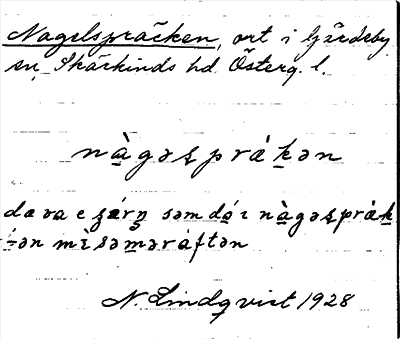 Nagelspräcken, ort i Gärdeby
sn, Skärkinds hd Österg. l.
nà̱gəʂpräḵən
dæ va e
səm dọ́ ɩ nà̱gəʂpräḵ
ən mɩ̀səm̱əráftən
N. Lindqvist 1928